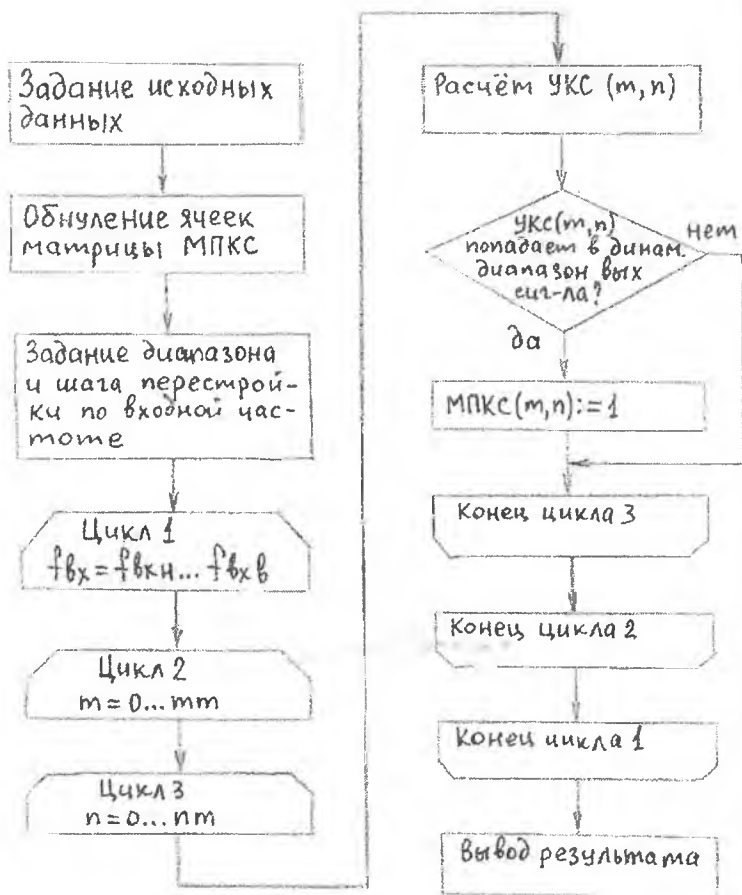 Задание исходных
данных
Обнуление ячеек
матрицы МПКС
Задание диапазона
и шага перестрой-
ки по входной час-
тоте
Цикл 1
fвх = fвхн... fвхв
Цикл 2
m = 0...mm
Цикл 3
n = 0...nm
Расчёт УКС (m,n)
УКС(m,n)
попадает в динам.
диапазон вых
сиг-ла?
нет
да
МПКС(m,n):=1
Конец цикла 3
Конец цикла 2
Конец цикла 1
Вывод результата